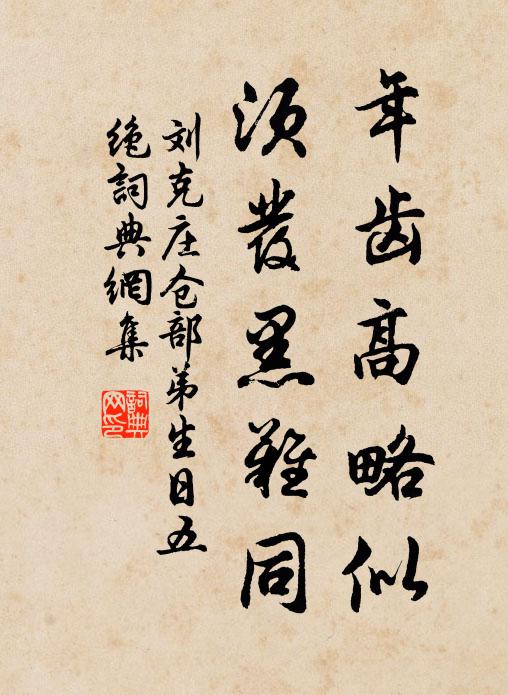 年齿高略似
须发黑难同
刘克庄仓部弟生日五
绝词典網集
詞典网印